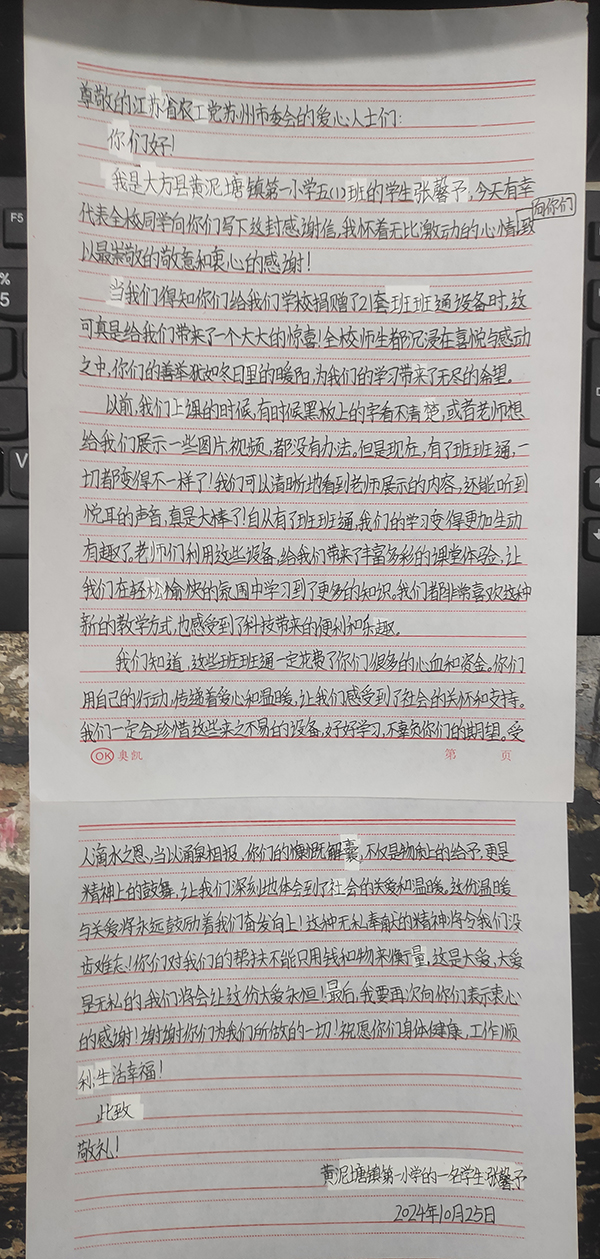 尊敬的江苏省农工党苏州市委会的爱心人士们：
你们好！
我是大方县黄泥塘镇第一小学五(1)班的学生张馨予，今天有幸
代表全校同学向你们写下这封感谢信，我怀着无比激动的心情，向你们致
以最崇敬的敬意和衷心的感谢！
当我们得知你们给我们学校捐赠了21套班班通设备时，这
可真是给我们带来了一个大大的惊喜！全校师生都沉浸在喜悦与感动
之中，你们的善举犹如冬日里的暖阳，为我们的学习带来了无尽的希望。
以前，我们上课的时候，有时候黑板上的字看不清楚，或者老师想
给我们展示一些图片、视频，都没有办法。但是现在，有了班班通，一
切都变得不一样了！我们可以清晰地看到老师展示的内容，还能听到
悦耳的声音，真是太棒了！自从有了班班通，我们的学习变得更加生动
有趣了。老师们利用这些设备，给我们带来了丰富多彩的课堂体验，让
我们在轻松愉快的氛围中学习到了更多的知识。我们都非常喜欢这种
新的教学方式，也感受到了科技带来的便利和乐趣。
我们知道，这些班班通一定花费了你们很多的心血和资金。你们
用自己的行动，传递着爱心和温暖，让我们感受到了社会的关怀和支持。
我们一定会珍惜这些来之不易的设备，好好学习，不辜负你们的期望。受
OK 奥凯 第 页
人滴水之恩，当以涌泉相报，你们的慷慨解囊，不仅是物质上的给予，更是
精神上的鼓舞，让我们深刻地体会到了社会的关爱和温暖。这份温暖
与关爱将永远鼓励着我们奋发向上！这种无私奉献的精神将令我们没
齿难忘！你们对我们的帮扶不能只用钱和物来衡量，这是大爱，大爱
是无私的，我们将会让这份大爱永恒！最后，我要再次向你们表示衷心
的感谢！谢谢你们为我们所做的一切！祝愿你们身体健康，工作顺
利；生活幸福！
此致
敬礼！
黄泥塘镇第一小学的一名学生张馨予
2024年10月25日